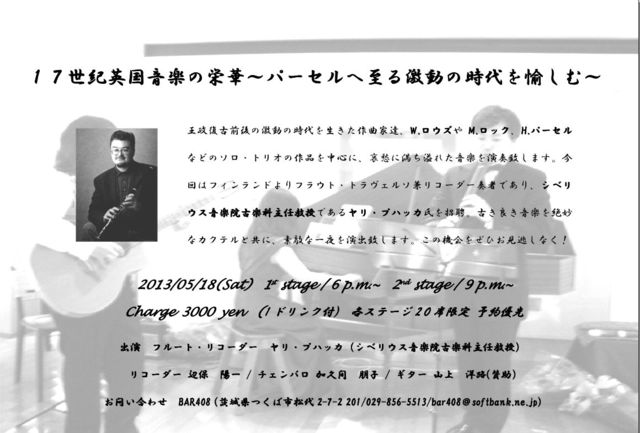 17世紀英国音楽の栄華～パーセルへ至る激動の時代を愉しむ～
王政復古前後の激動の時代を生きた作曲家達、W.ロウズや M.ロック、H.パーセル
などのソロ・トリオの作品を中心に、哀愁に満ち溢れた音楽を演奏致します。今
回はフィンランドよりフラウト・トラヴェルソ兼リコーダー奏者であり、シベリ
ウス音楽院古楽科主任教授であるヤリ・プハッカ氏を招聘。古き良き音楽を絶妙
なカクテルと共に、素敵な一夜を演出致します。この機会をぜひお見逃しなく！
2013/05/18(Sat) 1st stage / 6 p.m.~ 2nd stage / 9 p.m.~
Charge 3000 yen (1ドリンク付) 各ステージ20席限定 予約優先
出演 フルート・リコーダー ヤリ・プハッカ (シベリウス音楽院古楽科主任教授)
リコーダー 辺保 陽一 / チェンバロ 加久間 朋子 / ギター 山上 洋路(賛助)
お問い合わせ BAR408 (茨城県つくば市松代 2-7-2 201/029-856-5513/bar408@softbank.ne.jp)